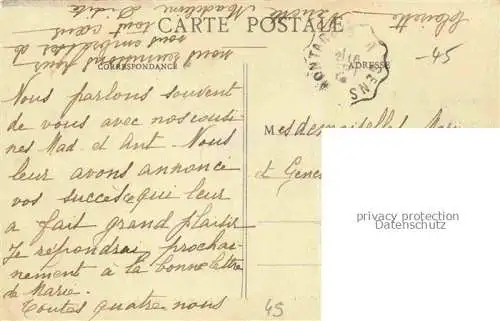 CARTE POSTALE
CORRESPONDANCE
ADRESSE
-45
Nous parlons souvent
de vous avec nos cousi
nes Mad. et Ant. Nous
leur avons annoncé
vos succès ce qui leur
a fait grand plaisir
Je répondrai prochai-
nement à la bonne lettre
de Marie.
Toutes quatre nous
nous sommes tous
vous embrassons de
tout cœur
Madeleine
Mesdemoiselles
et Gene
privacy protection
Datenschutz
45